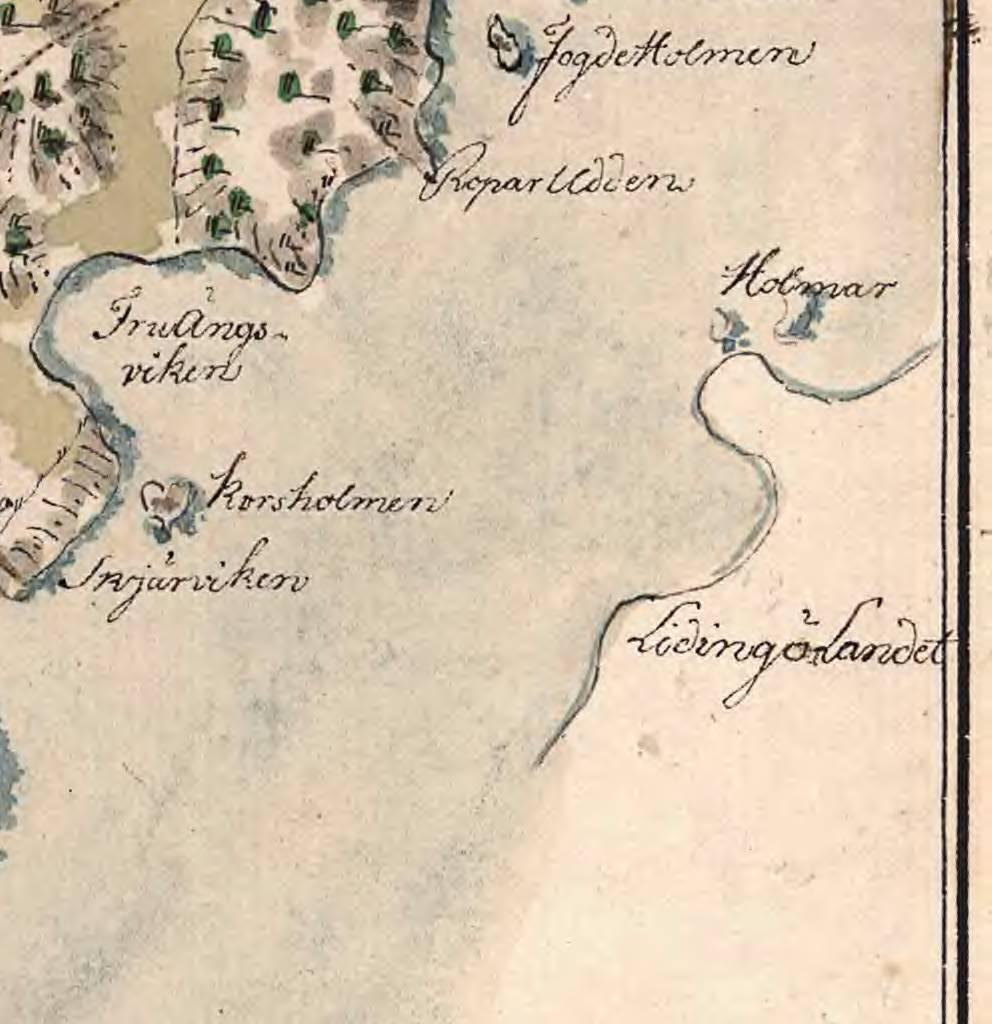 FogdeHolmen
RoparUdden
Holmar
FruÄngs-
viken
Korsholmen
Skjärviken
LidingöLandet